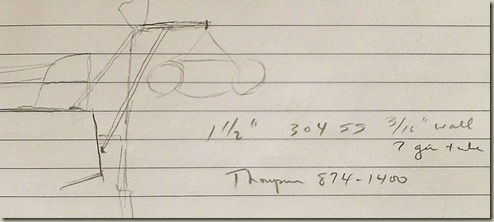 1 1/2" 304 SS 3/16" wall
7 ga tube
Thompson 874-1400